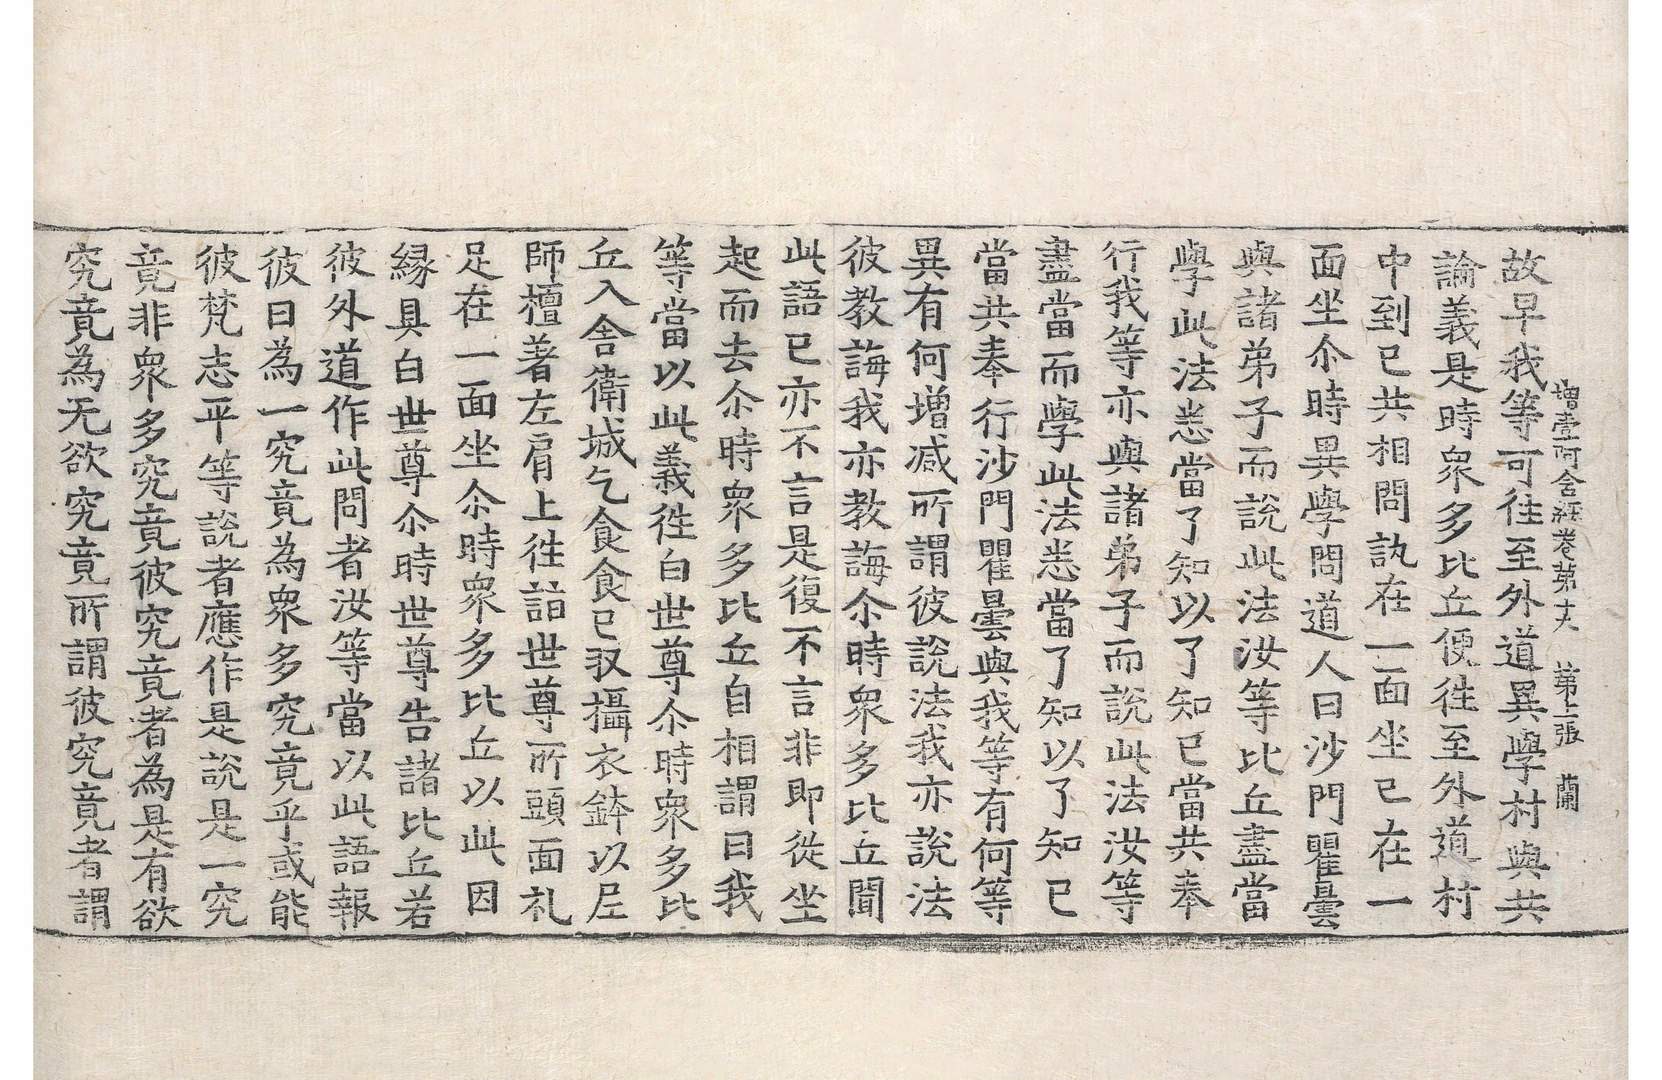 增壹阿含經卷第十六 第上張 蘭
故早我等可往至外道異學村與共
論義是時衆多比丘便往至外道村
中到已共相問訊在一面坐已在一
面坐尒時異學問道人曰沙門瞿曇
與諸弟子而說此法汝等比丘盡當
學此法悉當了知以了知已當共奉
行我等亦與諸弟子而說此法汝等
盡當而學此法悉當了知以了知已
當共奉行沙門瞿曇與我等有何等
異有何增減所謂彼說法我亦說法
彼教誨我亦教誨尒時衆多比丘聞
此語已亦不言是復不言非即從坐
起而去尒時衆多比丘自相謂曰我
等當以此義往白世尊尒時衆多比
丘入舍衛城乞食食已収攝衣鉢以尼
師檀著左肩上往詣世尊所頭面礼
足在一面坐尒時衆多比丘以此因
緣具白世尊尒時世尊告諸比丘若
彼外道作此問者汝等當以此語報
彼曰為一究竟為衆多究竟乎或能
彼梵志平等說者應作是說是一究
竟非衆多究竟彼究竟者為是有欲
究竟為无欲究竟所謂彼究竟者謂